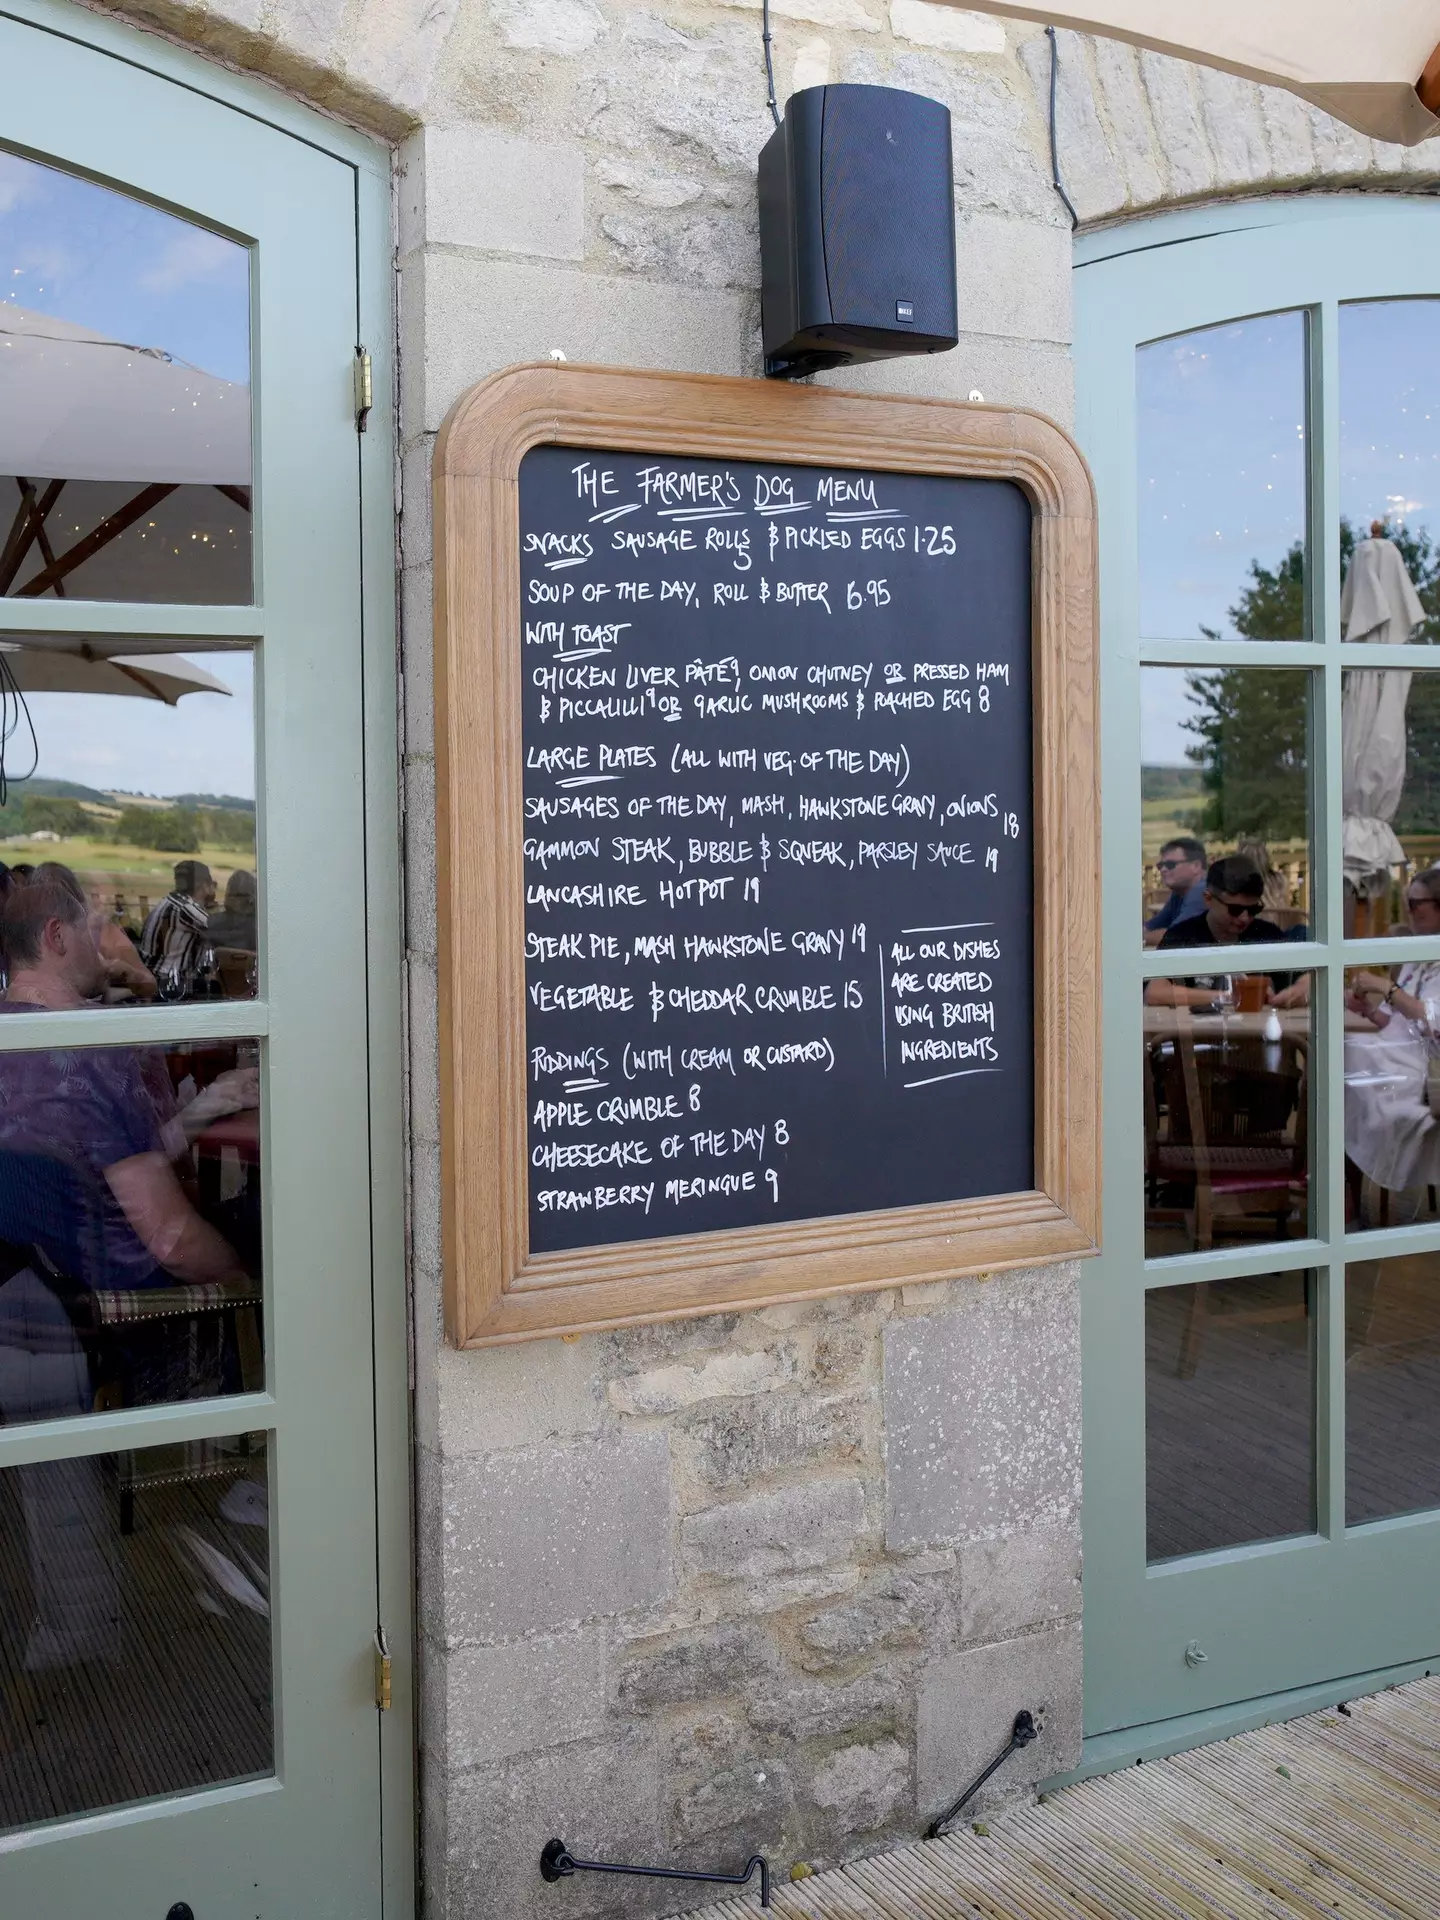 THE FARMER'S DOG MENU
SNACKS SAUSAGE ROLLS 5 & PICKLED EGGS 1.25
SOUP OF THE DAY, ROLL & BUTTER 6.95
WITH TOAST
CHICKEN LIVER PÂTÉ 9, ONION CHUTNEY OR PRESSED HAM
& PICCALILLI 9 OR GARLIC MUSHROOMS & POACHED EGG 8
LARGE PLATES (ALL WITH VEG. OF THE DAY)
SAUSAGES OF THE DAY, MASH, HAWKSTONE GRAVY, ONIONS 18
GAMMON STEAK, BUBBLE & SQUEAK, PARSLEY SAUCE 19
LANCASHIRE HOTPOT 19
STEAK PIE, MASH HAWKSTONE GRAVY 19
VEGETABLE & CHEDDAR CRUMBLE 15
ALL OUR DISHES
ARE CREATED
USING BRITISH
INGREDIENTS
PUDDINGS (WITH CREAM OR CUSTARD)
APPLE CRUMBLE 8
CHEESECAKE OF THE DAY 8
STRAWBERRY MERINGUE 9